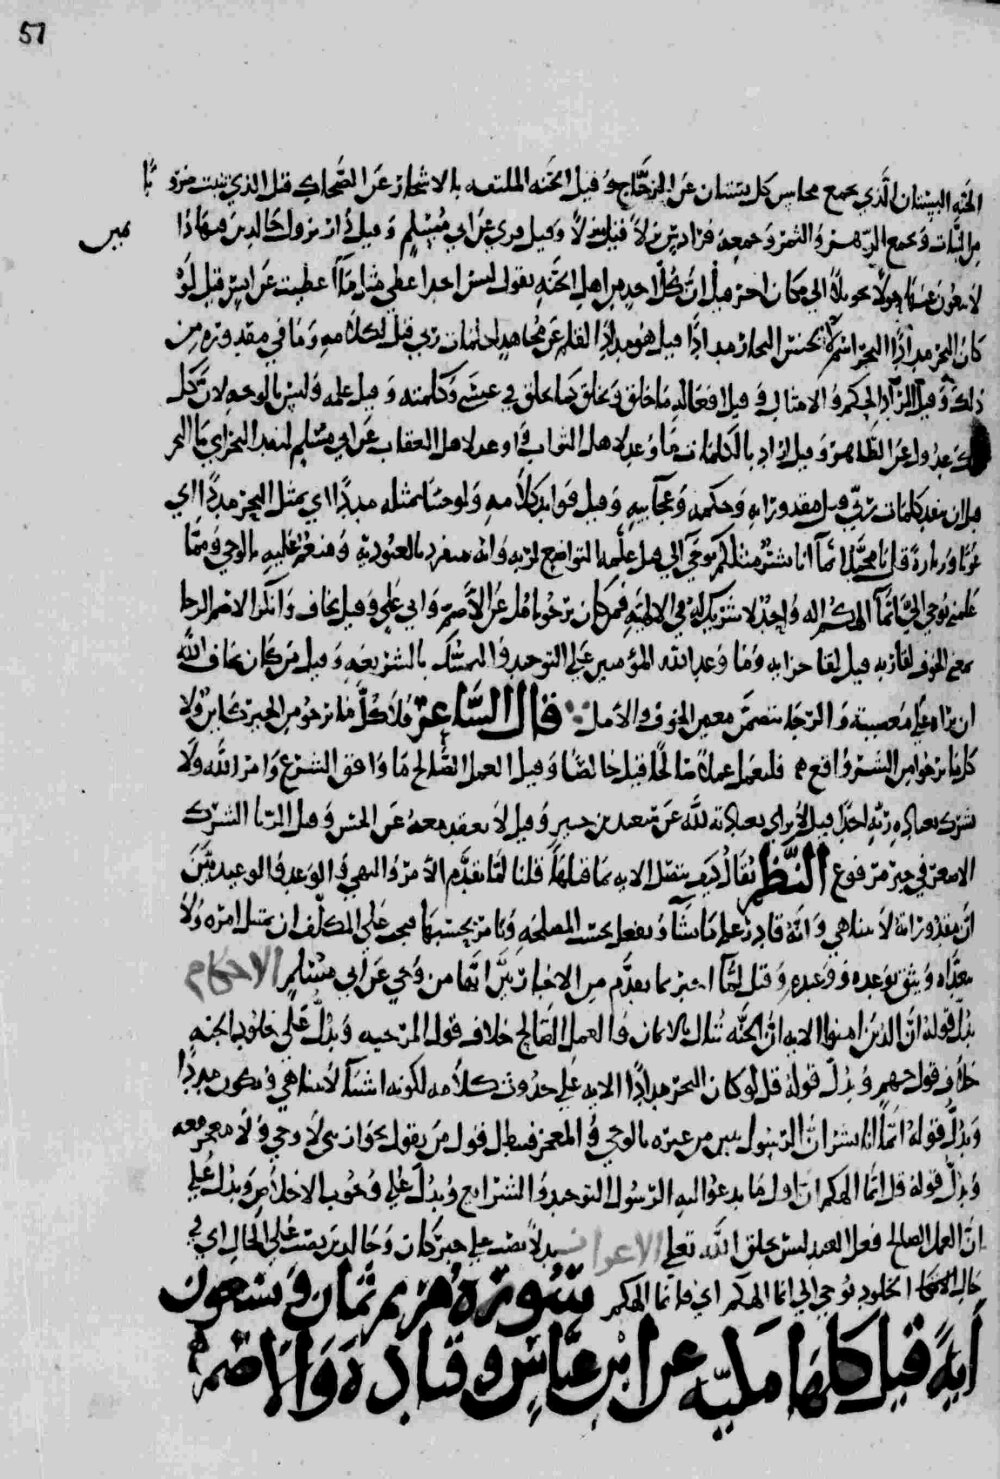 57
الجنه البستان الذي يجمع محاسن كل بستان عن الزجاج وقيل الجنه الملتفه بالاشجار عن الضحاك قيل الذي ينبت ضروبا
من النبات ويجمع الزهر والثمر وجمعه فراديس نزلا قيل منزلا وقيل قرى عن ابي مسلم وقيل دار نزول خالدين فيها ابدا
لا يبغون عنها حولا تحويلا الى مكان اخر قيل ان كل احد من اهل الجنه يقول ليس احد اعطي مثل ما اعطيت قل لو
كان البحر مدادا البحر اسم لجنس البحار مدادا قيل هو مداد القلم عن مجاهد لكلمات ربي قيل لكلامه وما في مقدوره من
ذلك وقيل الحكم والامثال وقيل افعاله ما خلق ويخلق كما يخلق في عيسى وكلمته وقيل علمه وليس بالوجه لان كل
ذلك عدول عن الظاهر وقيل اراد بالكلمات ما وعد لاهل الثواب واوعد لاهل العقاب عن ابي مسلم لنفد البحر اي ماء البحر
قبل ان تنفد كلمات ربي قيل مقدوراته وحكمه وعجائبه وقيل فوائد كلامه ولو جئنا بمثله مددا اي بمثل البحر مددا اي
عونا وزيادة قل يا محمد انما انا بشر مثلكم يوحى الي قيل علمه التواضع لربه
يوحى الي انما الهكم اله واحد لا شريك له في الالهيه فمن كان يرجو يامل عن الاصم وابي علي وقيل يخاف وانكر الاصم الرجا
بمعنى الخوف لقا ربه قيل لقا جزائه وما وعد الله المؤمنين على التوحيد والتمسك بالشريعه وقيل من كان يخاف الله
ان يراه على معصيته والرجا يتضمن معنيين الخوف والامل قال الشاعر فلا كل ما ترجو من الخير كاين ولا
كل ما ترجو من الشر واقع فليعمل عملا صالحا قيل خالصا وقيل العمل الصالح ما وافق الشرع وامر الله ولا
يشرك بعبادة ربه احدا قيل لا يرائي بعبادته لله عن سعيد بن جبير وقيل لا يعبد معه غيره عن الحسن وقيل الريا الشرك
الاصغر في خبر مرفوع النظم يقال كيف يتصل الايه بما قبلها قلنا لما تقدم الامر والنهي والوعد والوعيد بين
ان مقدوراته لا تتناهى وانه قادر على ما يشا ويفعل بحسب المصلحه ويامر بحسبها فيجب على المكلف ان يمتثل امره ولا
يتعداه ويثق بوعده ووعيده وقيل لما اخبر بما تقدم من الاخبار بين انها من وحي عن ابي مسلم الاحكام
يدل قوله ان الذين امنوا الايه ان الجنه تنال بالايمان والعمل الصالح خلاف قول المرجيه ويدل على خلود الجنه
خلاف قول جهم ويدل قوله قل لو كان البحر مدادا الايه على حدوث كلامه لكونه اشياء لا تتناهى ويكون مددا
ويدل قوله انما انا بشر ان الرسول يبين من غيره بالوحي والمعجز فيبطل قول من يقول بجواز نبي لا وحي ولا معجز معه
ويدل قوله قل انما الهكم ان اول ما يدعو اليه الرسول التوحيد والشرائع ويدل على وجوب الاخلاص ويدل على
ان العمل الصالح فعل العبد ليس بخلق الله تعالى الاعراب نزلا نصب على خبر كان وخالدين نصب على الحال اي في
حال الخلود يوحى الي انما الهكم اي فانما الهكم سورة مريم ثمان وتسعون
اية قيل كلها مكيه عن ابن عباس وقتادة والاصم